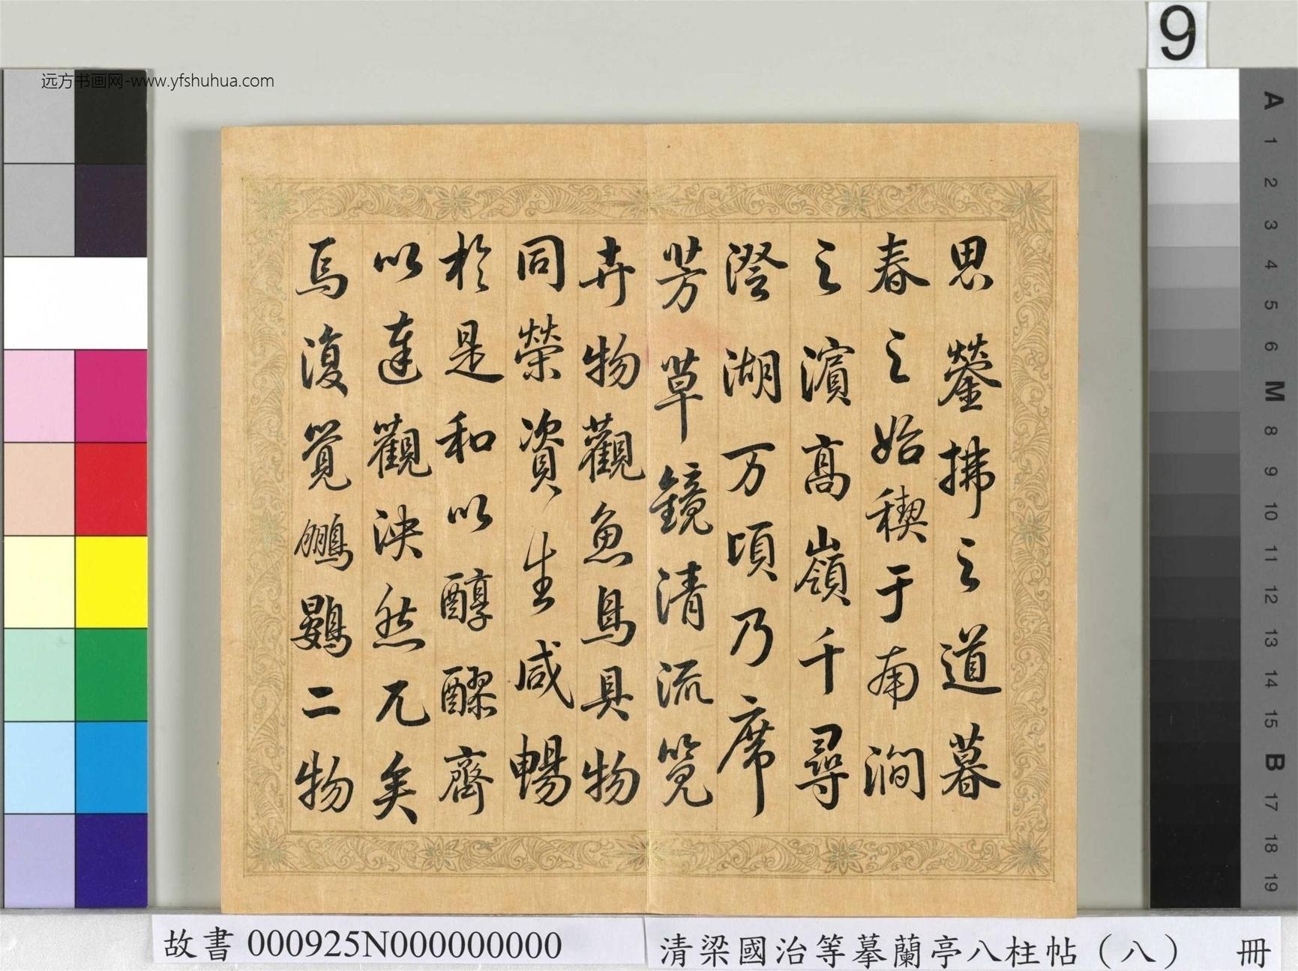 远方书画网-www.yfshuhua.com
9
思鎣拂之道暮
春之始禊于南澗
之濱高嶺千尋
澄湖万頃乃席
芳草鏡清流覽
卉物觀魚鳥具物
同榮資生咸暢
於是和以醇醪齊
以達觀泱然兀矣
焉復覺鵬鷃二物
A
1
2
3
4
5
6
M
8
9
10
11
12
13
14
15
B
17
18
19
故書 000925N000000000
清梁國治等摹蘭亭八柱帖（八） 冊